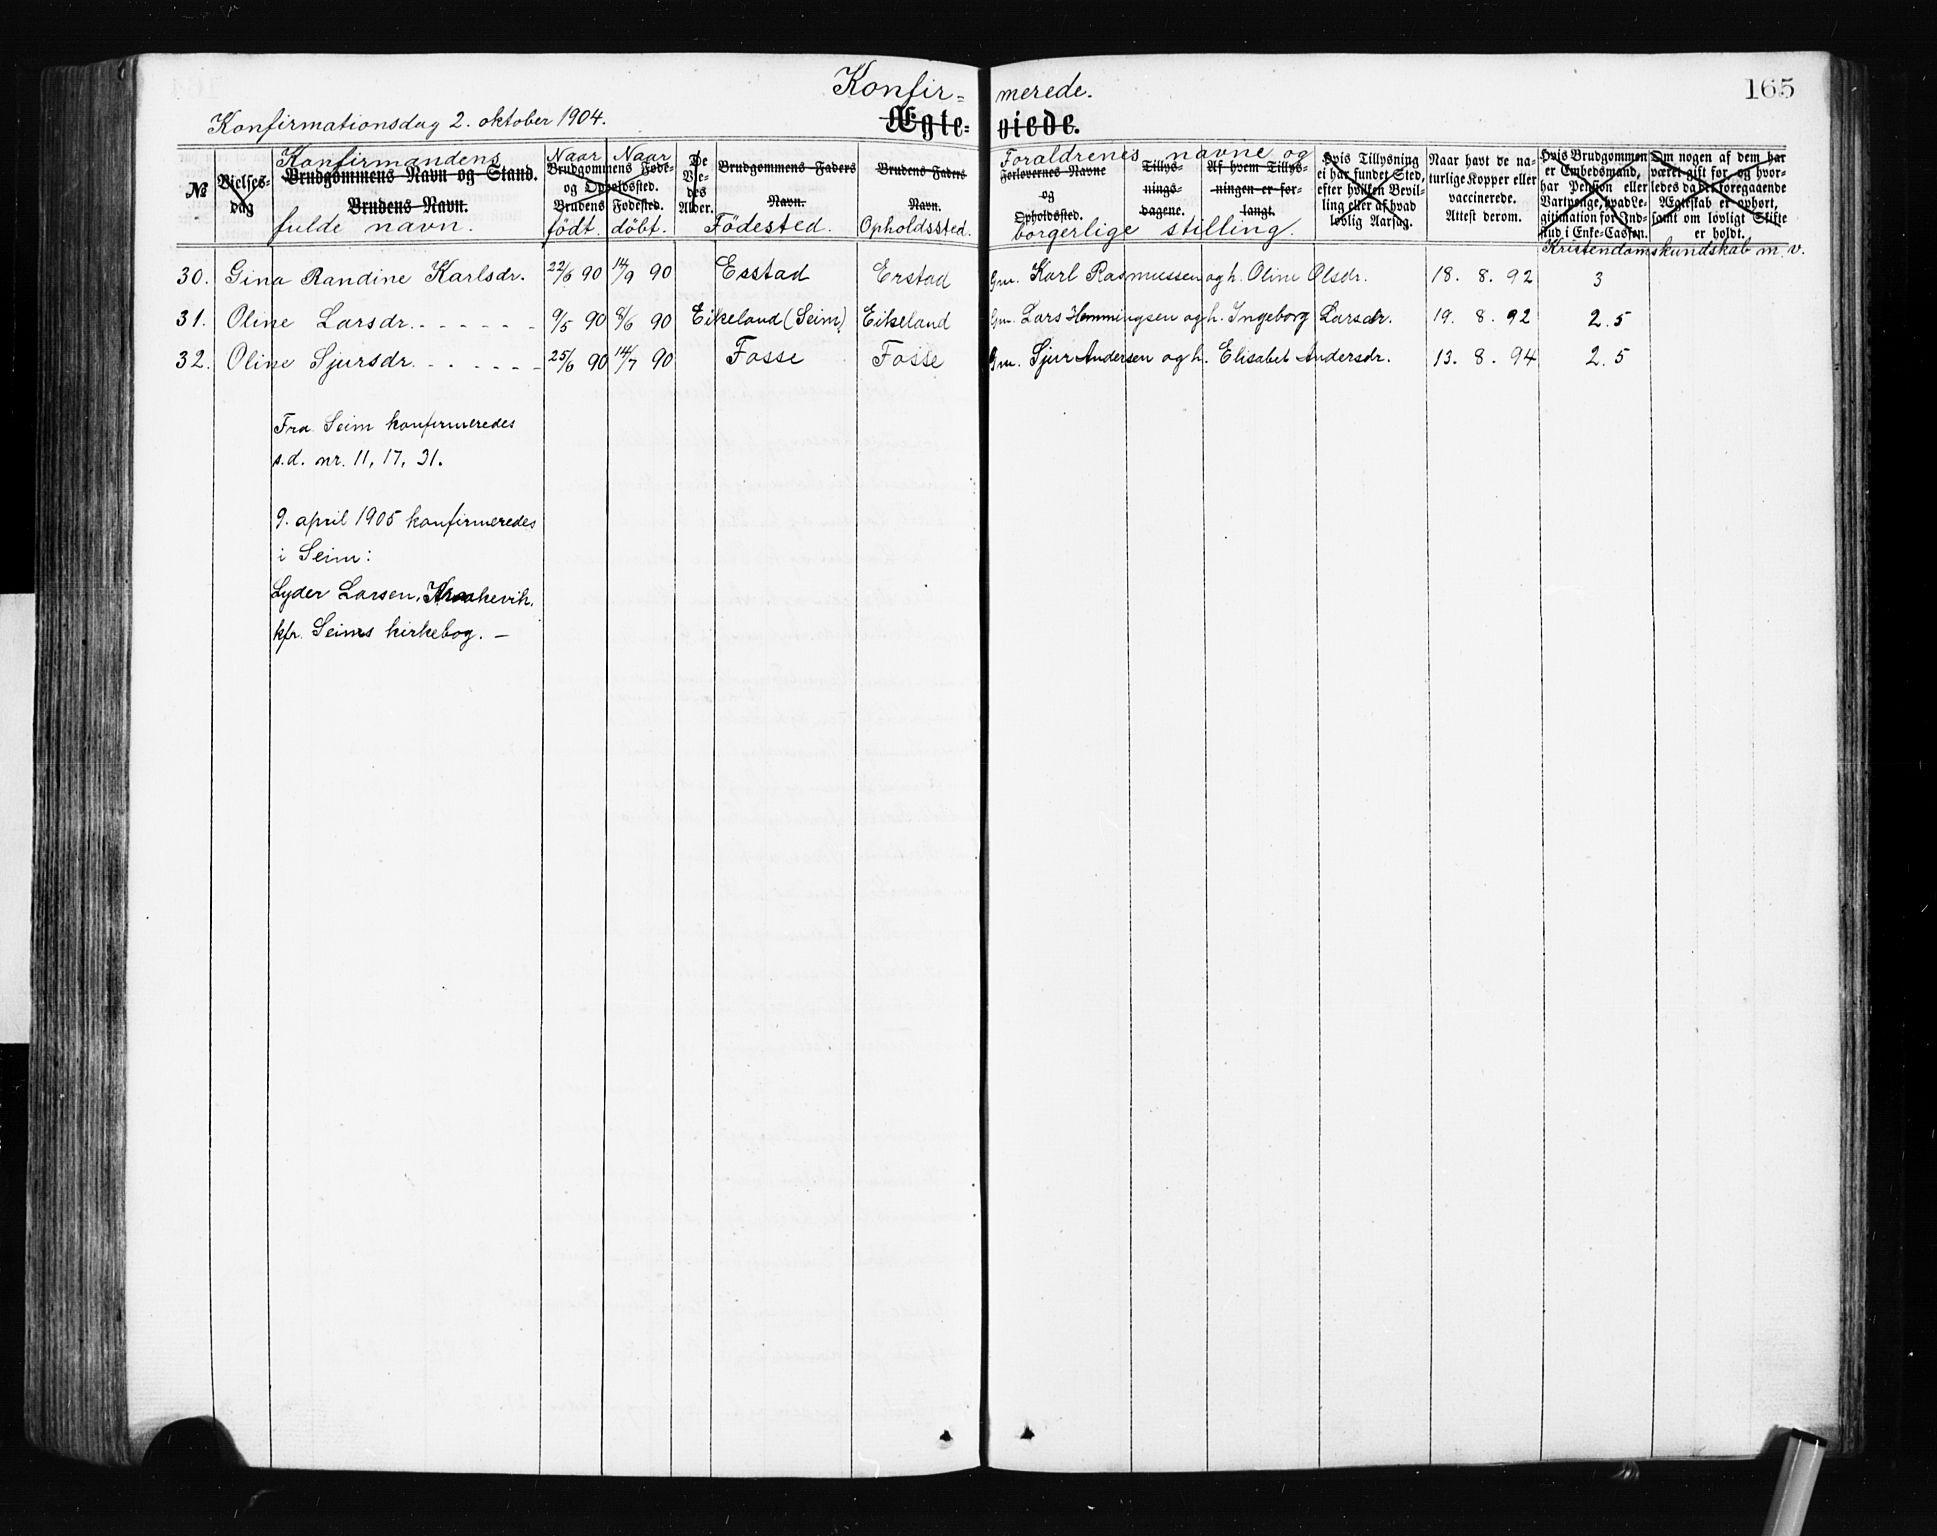 Konfirmerede. 165
Konfirmationsdag 2. oktober 1904. Ægteviede.
№
Vielses-
dag
Konfirmandens
Brudgommens Navn og Stand.
Brudens Navn.
fulde navn.
Naar
Naar
Brudgommens Føde-
og Opholdssted.
Brudens Fødested.
født.
døbt.
De
Vie-
des
Alder.
Brudgommens Faders
Navn.
Födested.
Brudens Faders
Navn.
Opholdssted.
Foraldrenes navne og
Forlovernes Navne
og
Opholdssted.
Tillys-
nings-
dagene.
Af hvem Tillys-
ningen er for-
langt.
borgerlige stilling.
Hvis Tillysning
ei har fundet Sted,
efter hvilken Bevil-
ling eller af hvad
lovlig Aarsag.
Naar havt de na-
turlige Kopper eller
vaccinerede.
Attest derom.
Hvis Brudgommen
er Embedsmand,
har Pension eller
Vartpenge, hvad Le-
gitimation for Ind-
skud i Enke-Cassen.
Om nogen af dem har
været gift før, og hvor-
ledes da det foregaaende
Ægteskab er ophørt,
samt om lovligt Skifte
er holdt.
Kristendomskundskab m. v.
30. Gina Randine Karlsdr. 22/6 90 14/9 90 Esstad Erstad Gm. Karl Rasmussen og h. Oline Olsdr. 18. 8. 92 3
31. Oline Larsdr. 9/5 90 8/6 90 Eikeland (Seim) Eikeland Gm. Lars Hemmingsen og h. Ingeborg Larsdr. 19. 8. 92 2.5
32. Oline Sjursdr. 25/6 90 14/7 90 Fosse Fosse Gm. Sjur Andersen og h. Elisabet Andersdr. 13. 8. 94 2.5
Fra Seim konfirmeredes
s.d. nr. 11, 17, 31.
9. april 1905 konfirmeredes
i Seim:
Lyder Larsen, Kraakevik,
kfr. Seims kirkebog. —